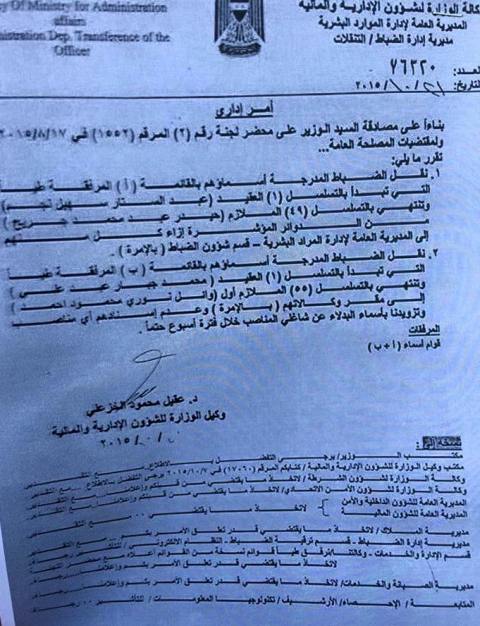 Of Ministry for Administration
affairs
Administration Dep. Transference of the
Officer
وكالة الوزارة لشؤون الإدارية والمالية
المديرية العامة لإدارة الموارد البشرية
مديرية إدارة الضباط / التنقلات
العدد: ٧٦٣٢٠
التاريخ: ٢٠١٥/١٠/٢١
أمر إداري
بناءاً على مصادقة السيد الوزير على محضر لجنة رقم (٢) المرقم (١٥٥٢) في ٢٠١٥/٨/١٧
ولمقتضيات المصلحة العامة...
تقرر ما يلي:
١. نقل الضباط المدرجة أسماؤهم بالقائمة (أ) المرفقة طياً
التي تبدأ بالتسلسل (١) العقيد (عبد الستار سهيل نجم)
وتنتهي بالتسلسل (٤٩) الملازم (حيدر عبد محمد جريح)
من الدوائر المؤشرة إزاء كل منهم
إلى المديرية العامة لإدارة المراد البشرية – قسم شؤون الضباط (بالإمرة).
٢. نقل الضباط المدرجة أسماؤهم بالقائمة (ب) المرفقة طياً
التي تبدأ بالتسلسل (١) العقيد (محمد جبار عبد علي)
وتنتهي بالتسلسل (٥٥) الملازم أول (وائل نوري محمود احمد)
إلى مقر وكالاتهم (بالإمرة) وعدم إسنادهم أي مناصب
وتزويدنا بأسماء البدلاء عن شاغلي المناصب خلال فترة أسبوع حتماً.
المرفقات
قوائم أسماء (أ + ب)
د. عقيل محمود الخزعلي
وكيل الوزارة للشؤون الإدارية والمالية
نسخة إلى:
مكتب الوزير/ يرجى التفضل بالاطلاع مع التقدير
مكتب وكيل الوزارة للشؤون الإدارية والمالية / كتابكم المرقم (١٧٠٦٠) في ٢٠١٥/١٠/٧ يرجى التفضل بالاطلاع مع التقدير
وكالة الوزارة لشؤون الشرطة / لاتخاذ ما يقتضي من قبلكم وإعلامنا مع التقدير
وكالة الوزارة لشؤون الأمن الاتحادي/ لاتخاذ ما يقتضي من قبلكم وإعلامنا مع التقدير
المديرية العامة للشؤون الداخلية والأمن
المديرية العامة للشؤون المالية
لاتخاذ ما يقتضي .. مع التقدير
مديرية الملاك / لاتخاذ ما يقتضي قدر تعلق الأمر بكم
مديرية إدارة الضباط - قسم ترقية الضباط - النظام الالكتروني
قسم الإدارة والخدمات
لاتخاذ ما يقتضي قدر تعلق الأمر بكم وإعلامنا
مديرية الصيانة والخدمات/ لاتخاذ ما يقتضي قدر تعلق الأمر بكم وإعلامنا
المتابعة / الإحصاء/ الأرشيف/ تكنولوجيا المعلومات / للتأشير